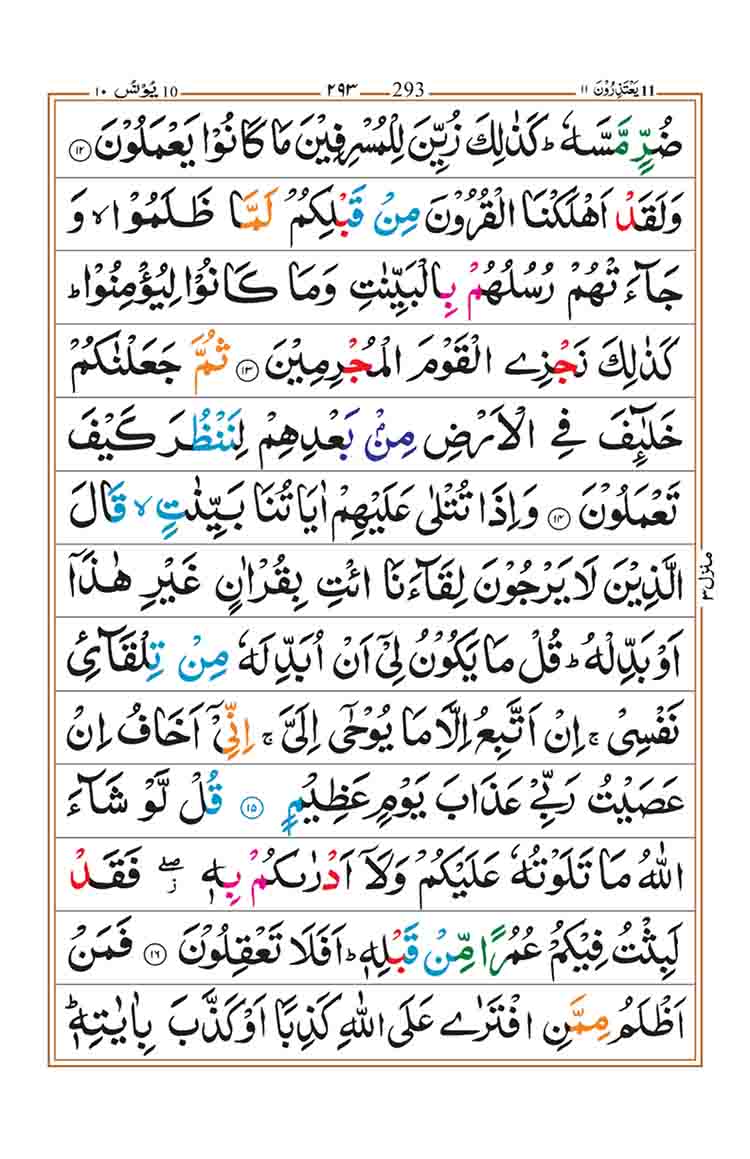 11 یَعْتَذِرُوْنَ ١١
293 ٢٩٣
10 یُوْنُس ١٠
ضُرٍّ مَّسَّهٗ ؕ كَذٰلِكَ زُیِّنَ لِلْمُسْرِفِیْنَ مَا كَانُوْا یَعْمَلُوْنَ ١٢
وَلَقَدْ اَهْلَكْنَا الْقُرُوْنَ مِنْ قَبْلِكُمْ لَمَّا ظَلَمُوْا ۙ وَ
جَآءَتْهُمْ رُسُلُهُمْ بِالْبَیِّنٰتِ وَمَا كَانُوْا لِیُؤْمِنُوْا ؕ
كَذٰلِكَ نَجْزِی الْقَوْمَ الْمُجْرِمِیْنَ ١٣ ثُمَّ جَعَلْنٰكُمْ
خَلٰٓئِفَ فِی الْاَرْضِ مِنْۢ بَعْدِهِمْ لِنَنْظُرَ كَیْفَ
تَعْمَلُوْنَ ١٤ وَاِذَا تُتْلٰی عَلَیْهِمْ اٰیَاتُنَا بَیِّنٰتٍ ۙ قَالَ
الَّذِیْنَ لَا یَرْجُوْنَ لِقَآءَنَا ائْتِ بِقُرْاٰنٍ غَیْرِ هٰذَاۤ
اَوْ بَدِّلْهُ ؕ قُلْ مَا یَكُوْنُ لِیْۤ اَنْ اُبَدِّلَهٗ مِنْ تِلْقَآئِ
نَفْسِیْ ۚ اِنْ اَتَّبِعُ اِلَّا مَا یُوْحٰۤی اِلَیَّ ۚ اِنِّیْۤ اَخَافُ اِنْ
عَصَیْتُ رَبِّیْ عَذَابَ یَوْمٍ عَظِیْمٍ ١٥ قُلْ لَّوْ شَآءَ
اللّٰهُ مَا تَلَوْتُهٗ عَلَیْكُمْ وَلَاۤ اَدْرٰىكُمْ بِهٖ ۖز فَقَدْ
لَبِثْتُ فِیْكُمْ عُمُرًا مِّنْ قَبْلِهٖ ؕ اَفَلَا تَعْقِلُوْنَ ١٦ فَمَنْ
اَظْلَمُ مِمَّنِ افْتَرٰی عَلَی اللّٰهِ كَذِبًا اَوْ كَذَّبَ بِاٰیٰتِهٖ ؕ
منزل ٣